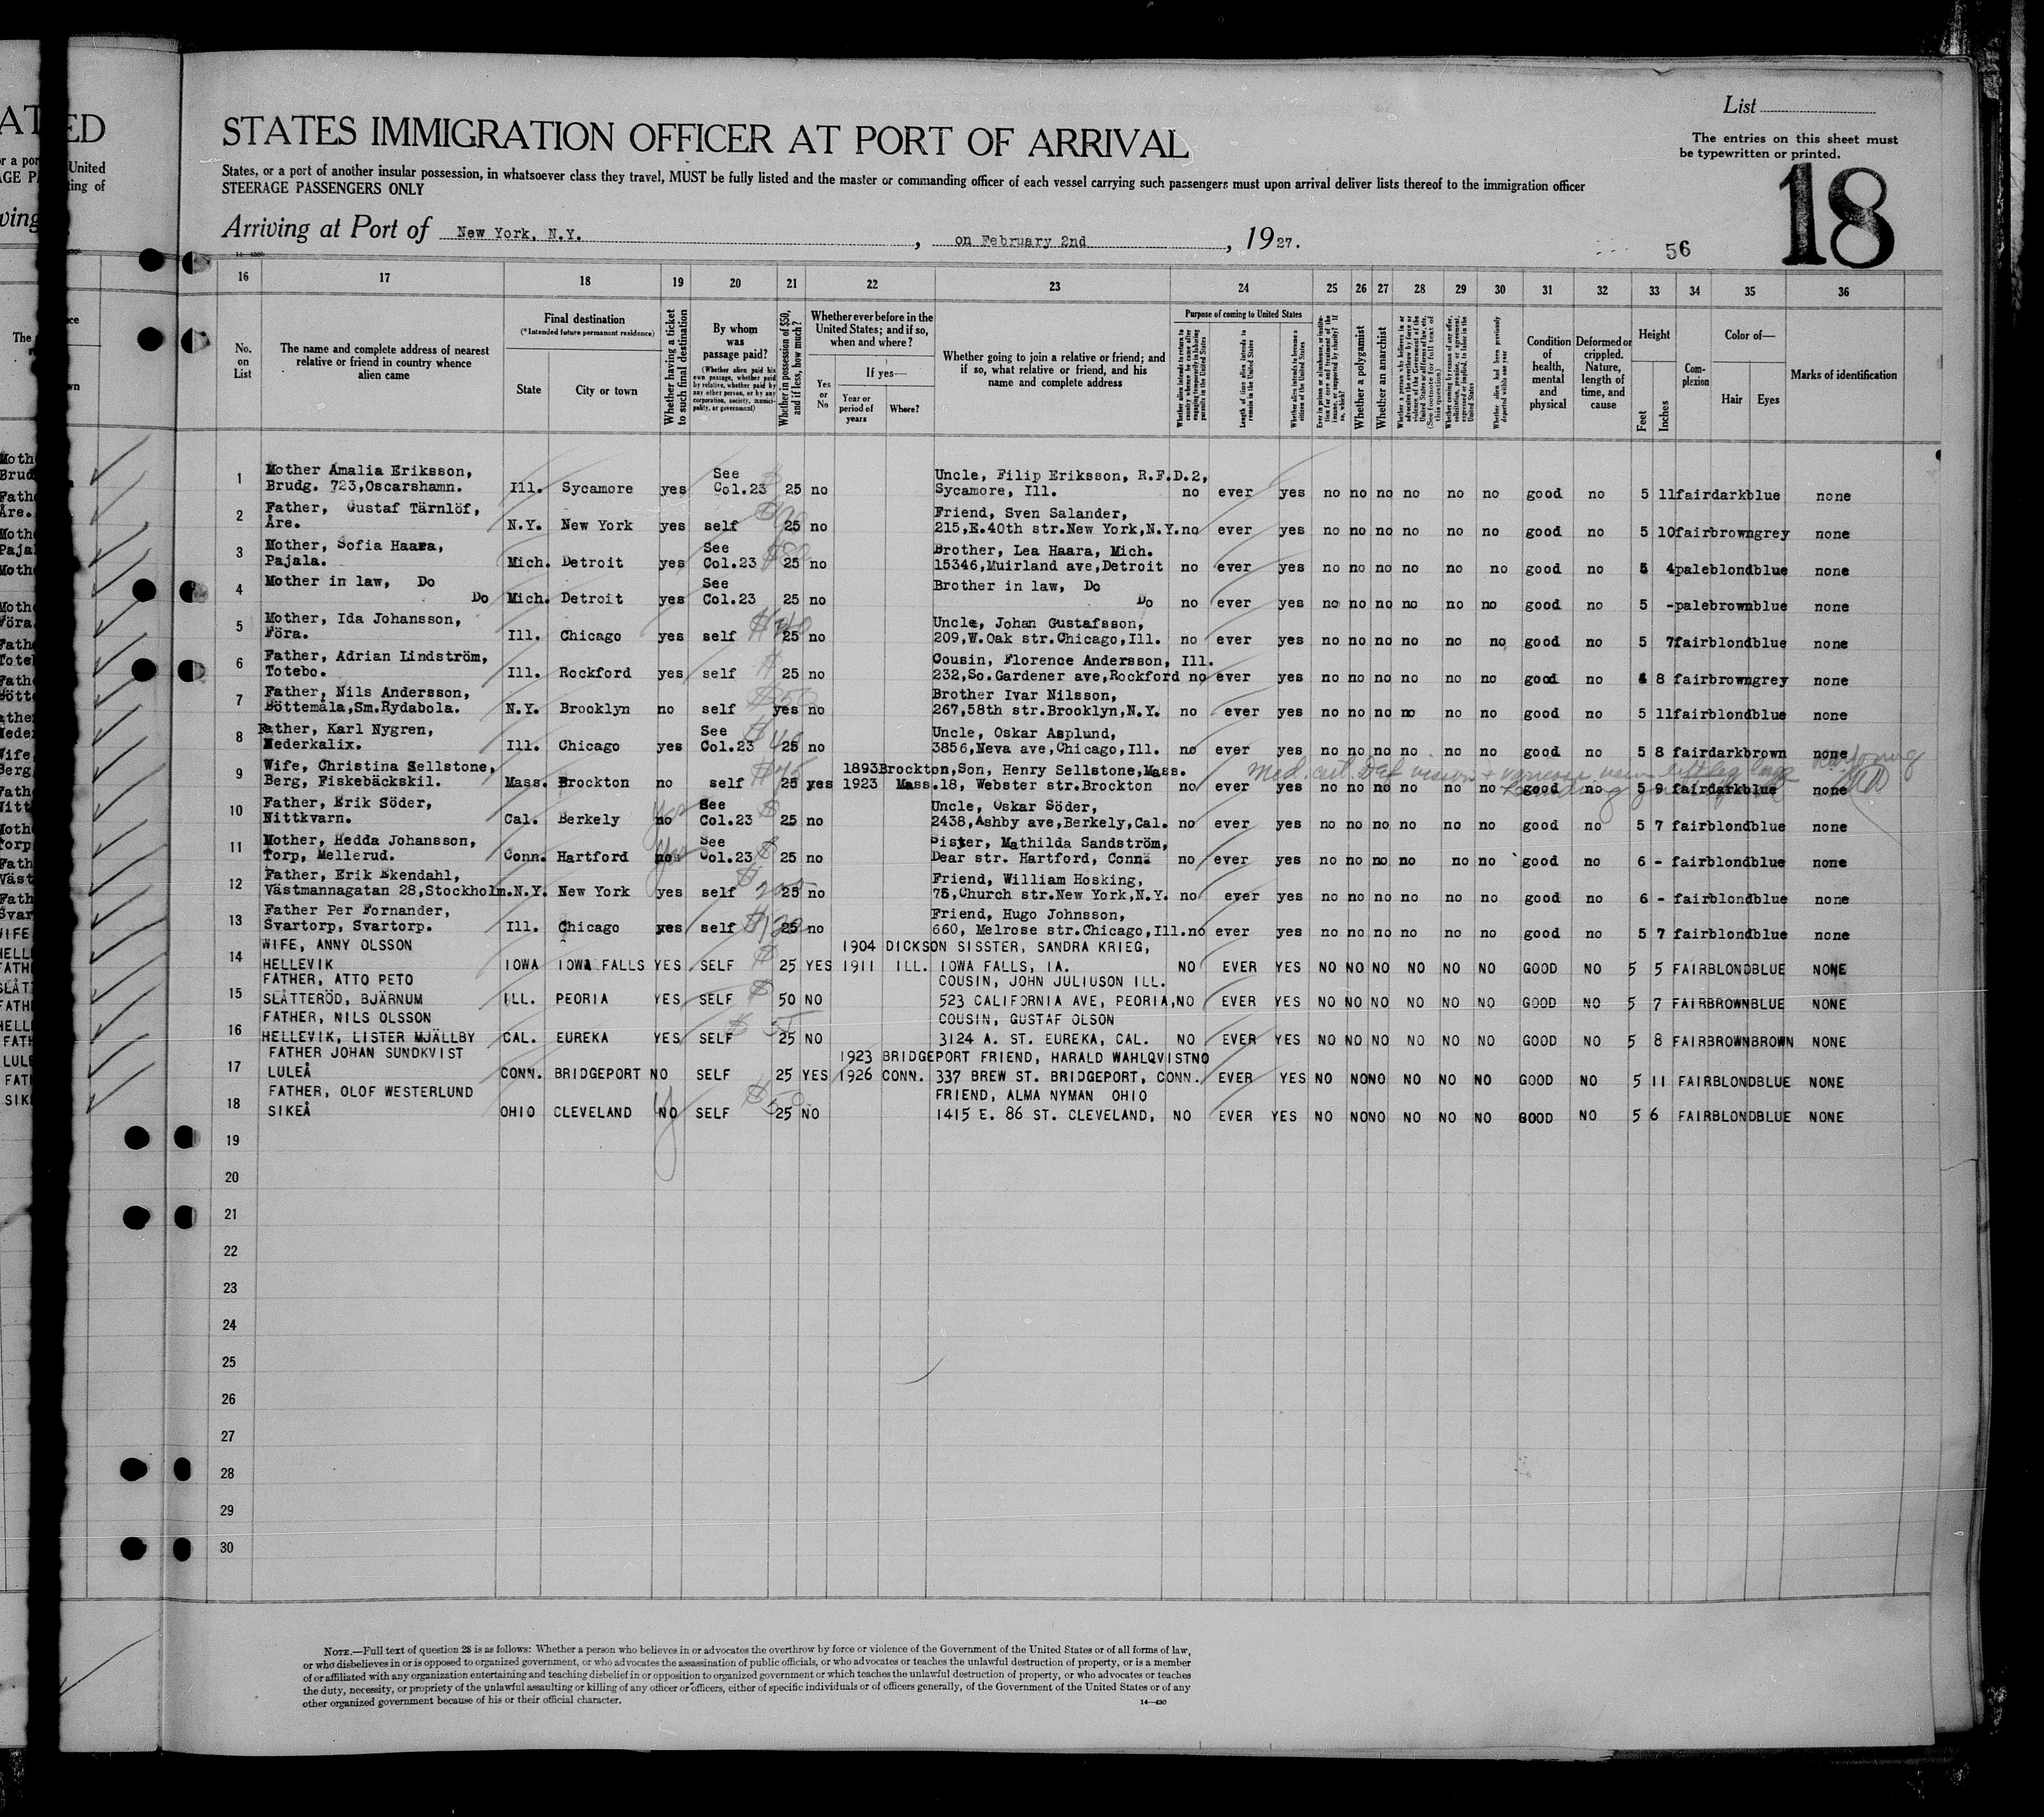 List
The entries on this sheet must
be typewritten or printed.
STATES IMMIGRATION OFFICER AT PORT OF ARRIVAL
18
States, or a port of another insular possession, in whatsoever class they travel, MUST be fully listed and the master or commanding officer of each vessel carrying such passengers must upon arrival deliver lists thereof to the immigration officer
STEERAGE PASSENGERS ONLY
Arriving at Port of New York, N.Y. , on February 2nd , 1927.
56
16 17 18 19 20 21 22 23 24 25 26 27 28 29 30 31 32 33 34 35 36
No. on List
The name and complete address of nearest relative or friend in country whence alien came
Final destination
(*Intended future permanent residence)
State City or town
Whether having a ticket to such final destination
By whom was passage paid?
(Whether alien paid his own passage, whether paid by relative, whether paid by any other person, or by any corporation, society, municipality, or government)
Whether in possession of $50, and if less, how much?
Whether ever before in the United States; and if so, when and where?
Yes or No
If yes—
Year or period of years Where?
Whether going to join a relative or friend; and if so, what relative or friend, and his name and complete address
Purpose of coming to United States
Length of time alien intends to remain in the United States
Whether alien intends to become a citizen of the United States
Whether a polygamist
Whether an anarchist
Whether alien had been previously deported within one year
Condition of health, mental and physical
Deformed or crippled. Nature, length of time, and cause
Height
Feet Inches
Complexion
Color of—
Hair Eyes
Marks of identification
1 Mother Amalia Eriksson, See Uncle, Filip Eriksson, R.F.D.2,
Brudg. 723,Oscarshamn. Ill. Sycamore yes Col.23 25 no Sycamore, Ill. no ever yes no no no no no no good no 5 11 fair dark blue none
2 Father, Gustaf Tärnlöf, Friend, Sven Salander,
Åre. N.Y. New York yes self 25 no 215,E.40th str.New York,N.Y. no ever yes no no no no no no good no 5 10 fair brown grey none
3 Mother, Sofia Haara, See Brother, Lea Haara, Mich.
Pajala. Mich. Detroit yes Col.23 25 no 15346,Muirland ave,Detroit no ever yes no no no no no no good no 5 4 pale blond blue none
4 Mother in law, Do See Brother in law, Do
Do Mich. Detroit yes Col.23 25 no Do no ever yes no no no no no no good no 5 - pale brown blue none
5 Mother, Ida Johansson, Uncle, Johan Gustafsson,
Föra. Ill. Chicago yes self 25 no 209,W.Oak str.Chicago,Ill. no ever yes no no no no no no good no 5 7 fair blond blue none
6 Father, Adrian Lindström, Cousin, Florence Andersson, Ill.
Totebo. Ill. Rockford yes self 25 no 232,So.Gardener ave,Rockford no ever yes no no no no no no good no 8 fair brown grey none
7 Father, Nils Andersson, Brother Ivar Nilsson,
Böttemåla,Sm.Rydabola. N.Y. Brooklyn no self yes no 267,58th str.Brooklyn,N.Y. no ever yes no no no no no no good no 5 11 fair blond blue none
8 Father, Karl Nygren, See Uncle, Oskar Asplund,
Nederkalix. Ill. Chicago yes Col.23 25 no 3856,Neva ave,Chicago,Ill. no ever yes no no no no no no good no 5 8 fair dark brown none
9 Wife, Christina Sellstone, 1893 Brockton,Son, Henry Sellstone,Mass.
Berg, Fiskebäckskil. Mass. Brockton no self 25 yes 1923 Mass. 18, Webster str.Brockton no ever yes no no no no no no good no 5 9 fair dark blue none
10 Father, Erik Söder, See Uncle, Oskar Söder,
Nittkvarn. Cal. Berkely no Col.23 25 no 2438,Ashby ave,Berkely,Cal. no ever yes no no no no no no good no 5 7 fair blond blue none
11 Mother, Hedda Johansson, See Sister, Mathilda Sandström,
Torp, Mellerud. Conn. Hartford no Col.23 25 no Dear str. Hartford, Conn. no ever yes no no no no no no good no 6 - fair blond blue none
12 Father, Erik Ekendahl, Friend, William Hosking,
Västmannagatan 28,Stockholm. N.Y. New York yes self 25 no 75,Church str.New York,N.Y. no ever yes no no no no no no good no 6 - fair blond blue none
13 Father Per Fornander, Friend, Hugo Johnsson,
Svartorp, Svartorp. Ill. Chicago yes self 25 no 660, Melrose str.Chicago,Ill. no ever yes no no no no no no good no 5 7 fair blond blue none
14 WIFE, ANNY OLSSON 1904 DICKSON SISSTER, SANDRA KRIEG,
HELLEVIK IOWA IOWA FALLS YES SELF 25 YES 1911 ILL. IOWA FALLS, IA. NO EVER YES NO NO NO NO NO NO GOOD NO 5 5 FAIR BLOND BLUE NONE
15 FATHER, ATTO PETO COUSIN, JOHN JULIUSON ILL.
SLÄTTERÖD, BJÄRNUM ILL. PEORIA YES SELF 50 NO 523 CALIFORNIA AVE, PEORIA, NO EVER YES NO NO NO NO NO NO GOOD NO 5 7 FAIR BROWN BLUE NONE
16 FATHER, NILS OLSSON COUSIN, GUSTAF OLSON
HELLEVIK, LISTER MJÄLLBY CAL. EUREKA YES SELF 25 NO 3124 A. ST. EUREKA, CAL. NO EVER YES NO NO NO NO NO NO GOOD NO 5 8 FAIR BROWN BROWN NONE
17 FATHER JOHAN SUNDKVIST 1923 BRIDGEPORT FRIEND, HARALD WAHLQVIST NO
LULEÅ CONN. BRIDGEPORT NO SELF 25 YES 1926 CONN. 337 BREW ST. BRIDGEPORT, CONN. EVER YES NO NO NO NO NO NO GOOD NO 5 11 FAIR BLOND BLUE NONE
18 FATHER, OLOF WESTERLUND FRIEND, ALMA NYMAN OHIO
SIKEÅ OHIO CLEVELAND NO SELF 25 NO 1415 E. 86 ST. CLEVELAND, NO EVER YES NO NO NO NO NO NO GOOD NO 5 6 FAIR BLOND BLUE NONE
19
20
21
22
23
24
25
26
27
28
29
30
NOTE.—Full text of question 28 is as follows: Whether a person who believes in or advocates the overthrow by force or violence of the Government of the United States or of all forms of law,
or who disbelieves in or is opposed to organized government, or who advocates the assassination of public officials, or who advocates or teaches the unlawful destruction of property, or is a member
of or affiliated with any organization entertaining and teaching disbelief in or opposition to organized government or which teaches the unlawful destruction of property, or who advocates or teaches
the duty, necessity, or propriety of the unlawful assaulting or killing of any officer or officers, either of specific individuals or of officers generally, of the Government of the United States or of any
other organized government because of his or their official character.
14—430